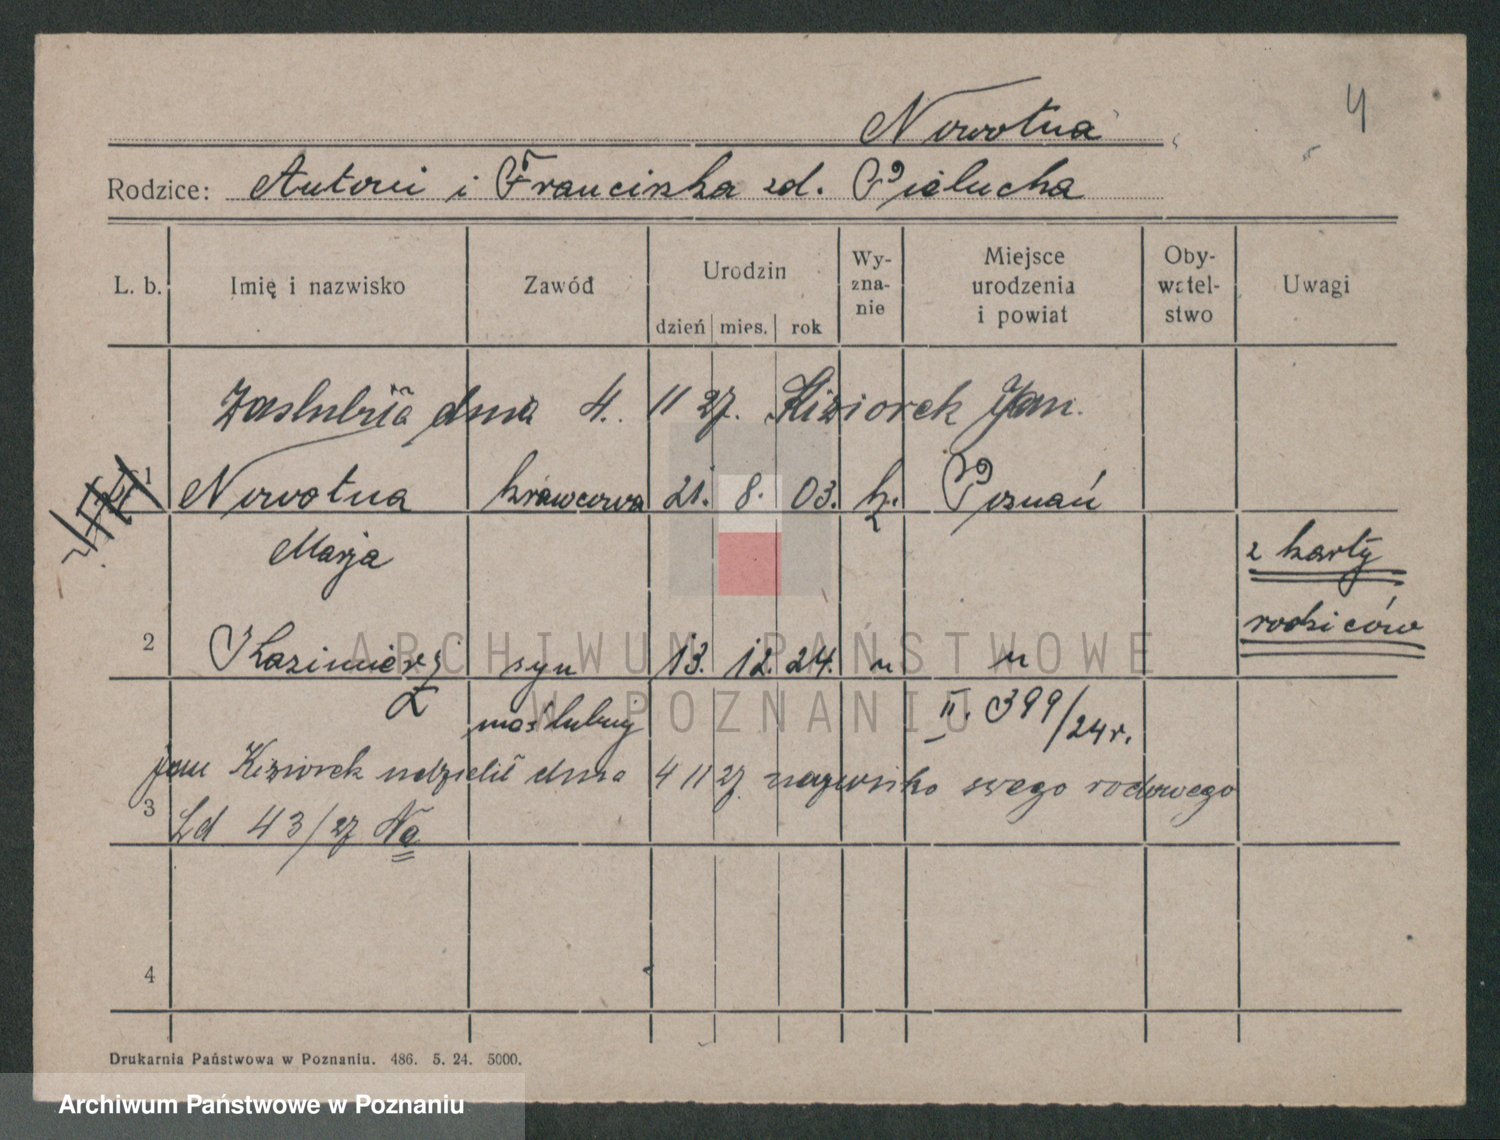 Nowotna
4
Rodzice: Antoni i Franciszka zd. Pielucha
L. b. Imię i nazwisko Zawód Urodzin dzień mies. rok Wy-zna-nie Miejsce urodzenia i powiat Oby-watel-stwo Uwagi
Zaślubiła dnia 4. 11 27. Kiziorek Jan.
1 Nowotna krawcowa 21. 8. 03. k. Poznań
Marja
2 karty
rodziców
2 Kazimierz syn 13. 12. 24. " "
nieślubny II. 399/24 r.
Jan Kiziorek udzielił dnia 4 11 27 nazwisko swego rodowego
3 Ld 43/27 Na
4
Drukarnia Państwowa w Poznaniu. 486. 5. 24. 5000.
ARCHIWUM PAŃSTWOWE
W POZNANIU
Archiwum Państwowe w Poznaniu